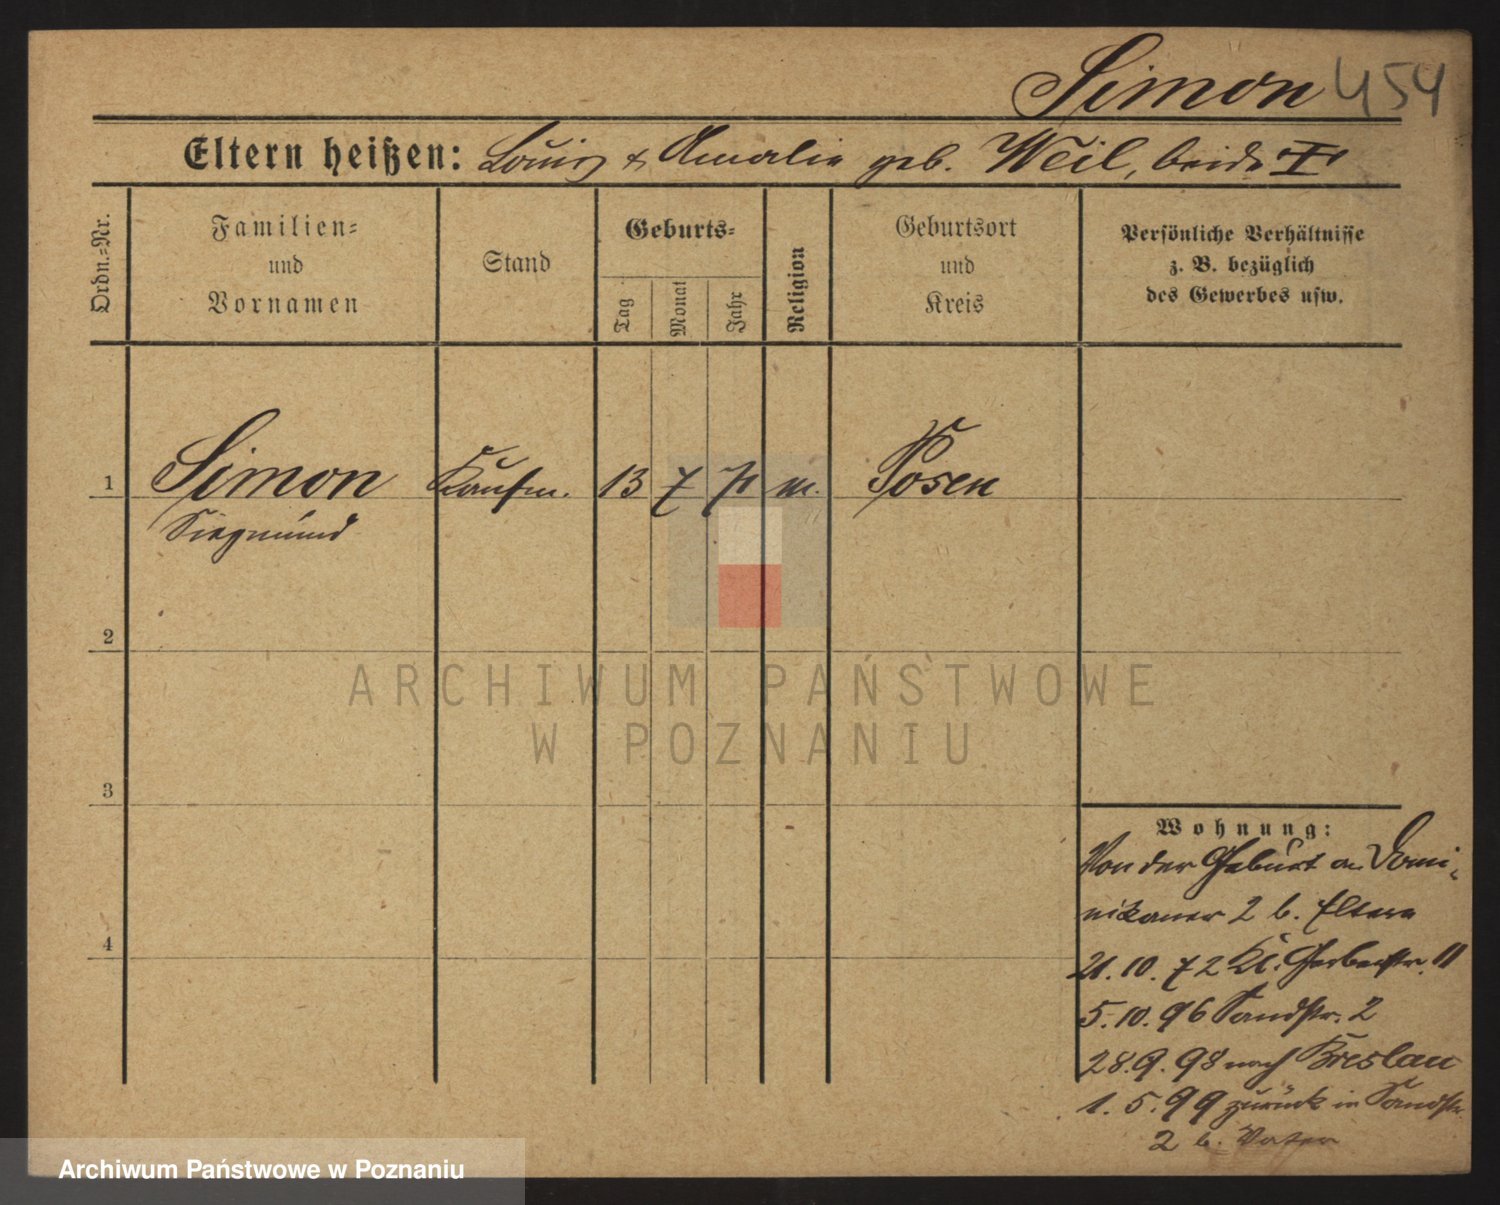 Simon 454
Eltern heißen: Louis & Amalie geb. Weil, beide †
Ordn.-Nr.
Familien-
und
Vornamen
Stand
Geburts-
Tag
Monat
Jahr
Religion
Geburtsort
und
Kreis
Persönliche Verhältnisse
z. B. bezüglich
des Gewerbes usw.
1 Simon Kaufm. 13 7 71 m. Posen
Siegmund
2
3
4
Wohnung:
Von der Geburt an Domi-
nikaner 2 b. Eltern
21. 10. 72 Kl. Gerberstr. 11
5. 10. 96 Sandstr. 2
28. 9. 98 nach Breslau
1. 5. 99 zurück in Sandstr.
2 b. Vater
ARCHIWUM PAŃSTWOWE
W POZNANIU
Archiwum Państwowe w Poznaniu